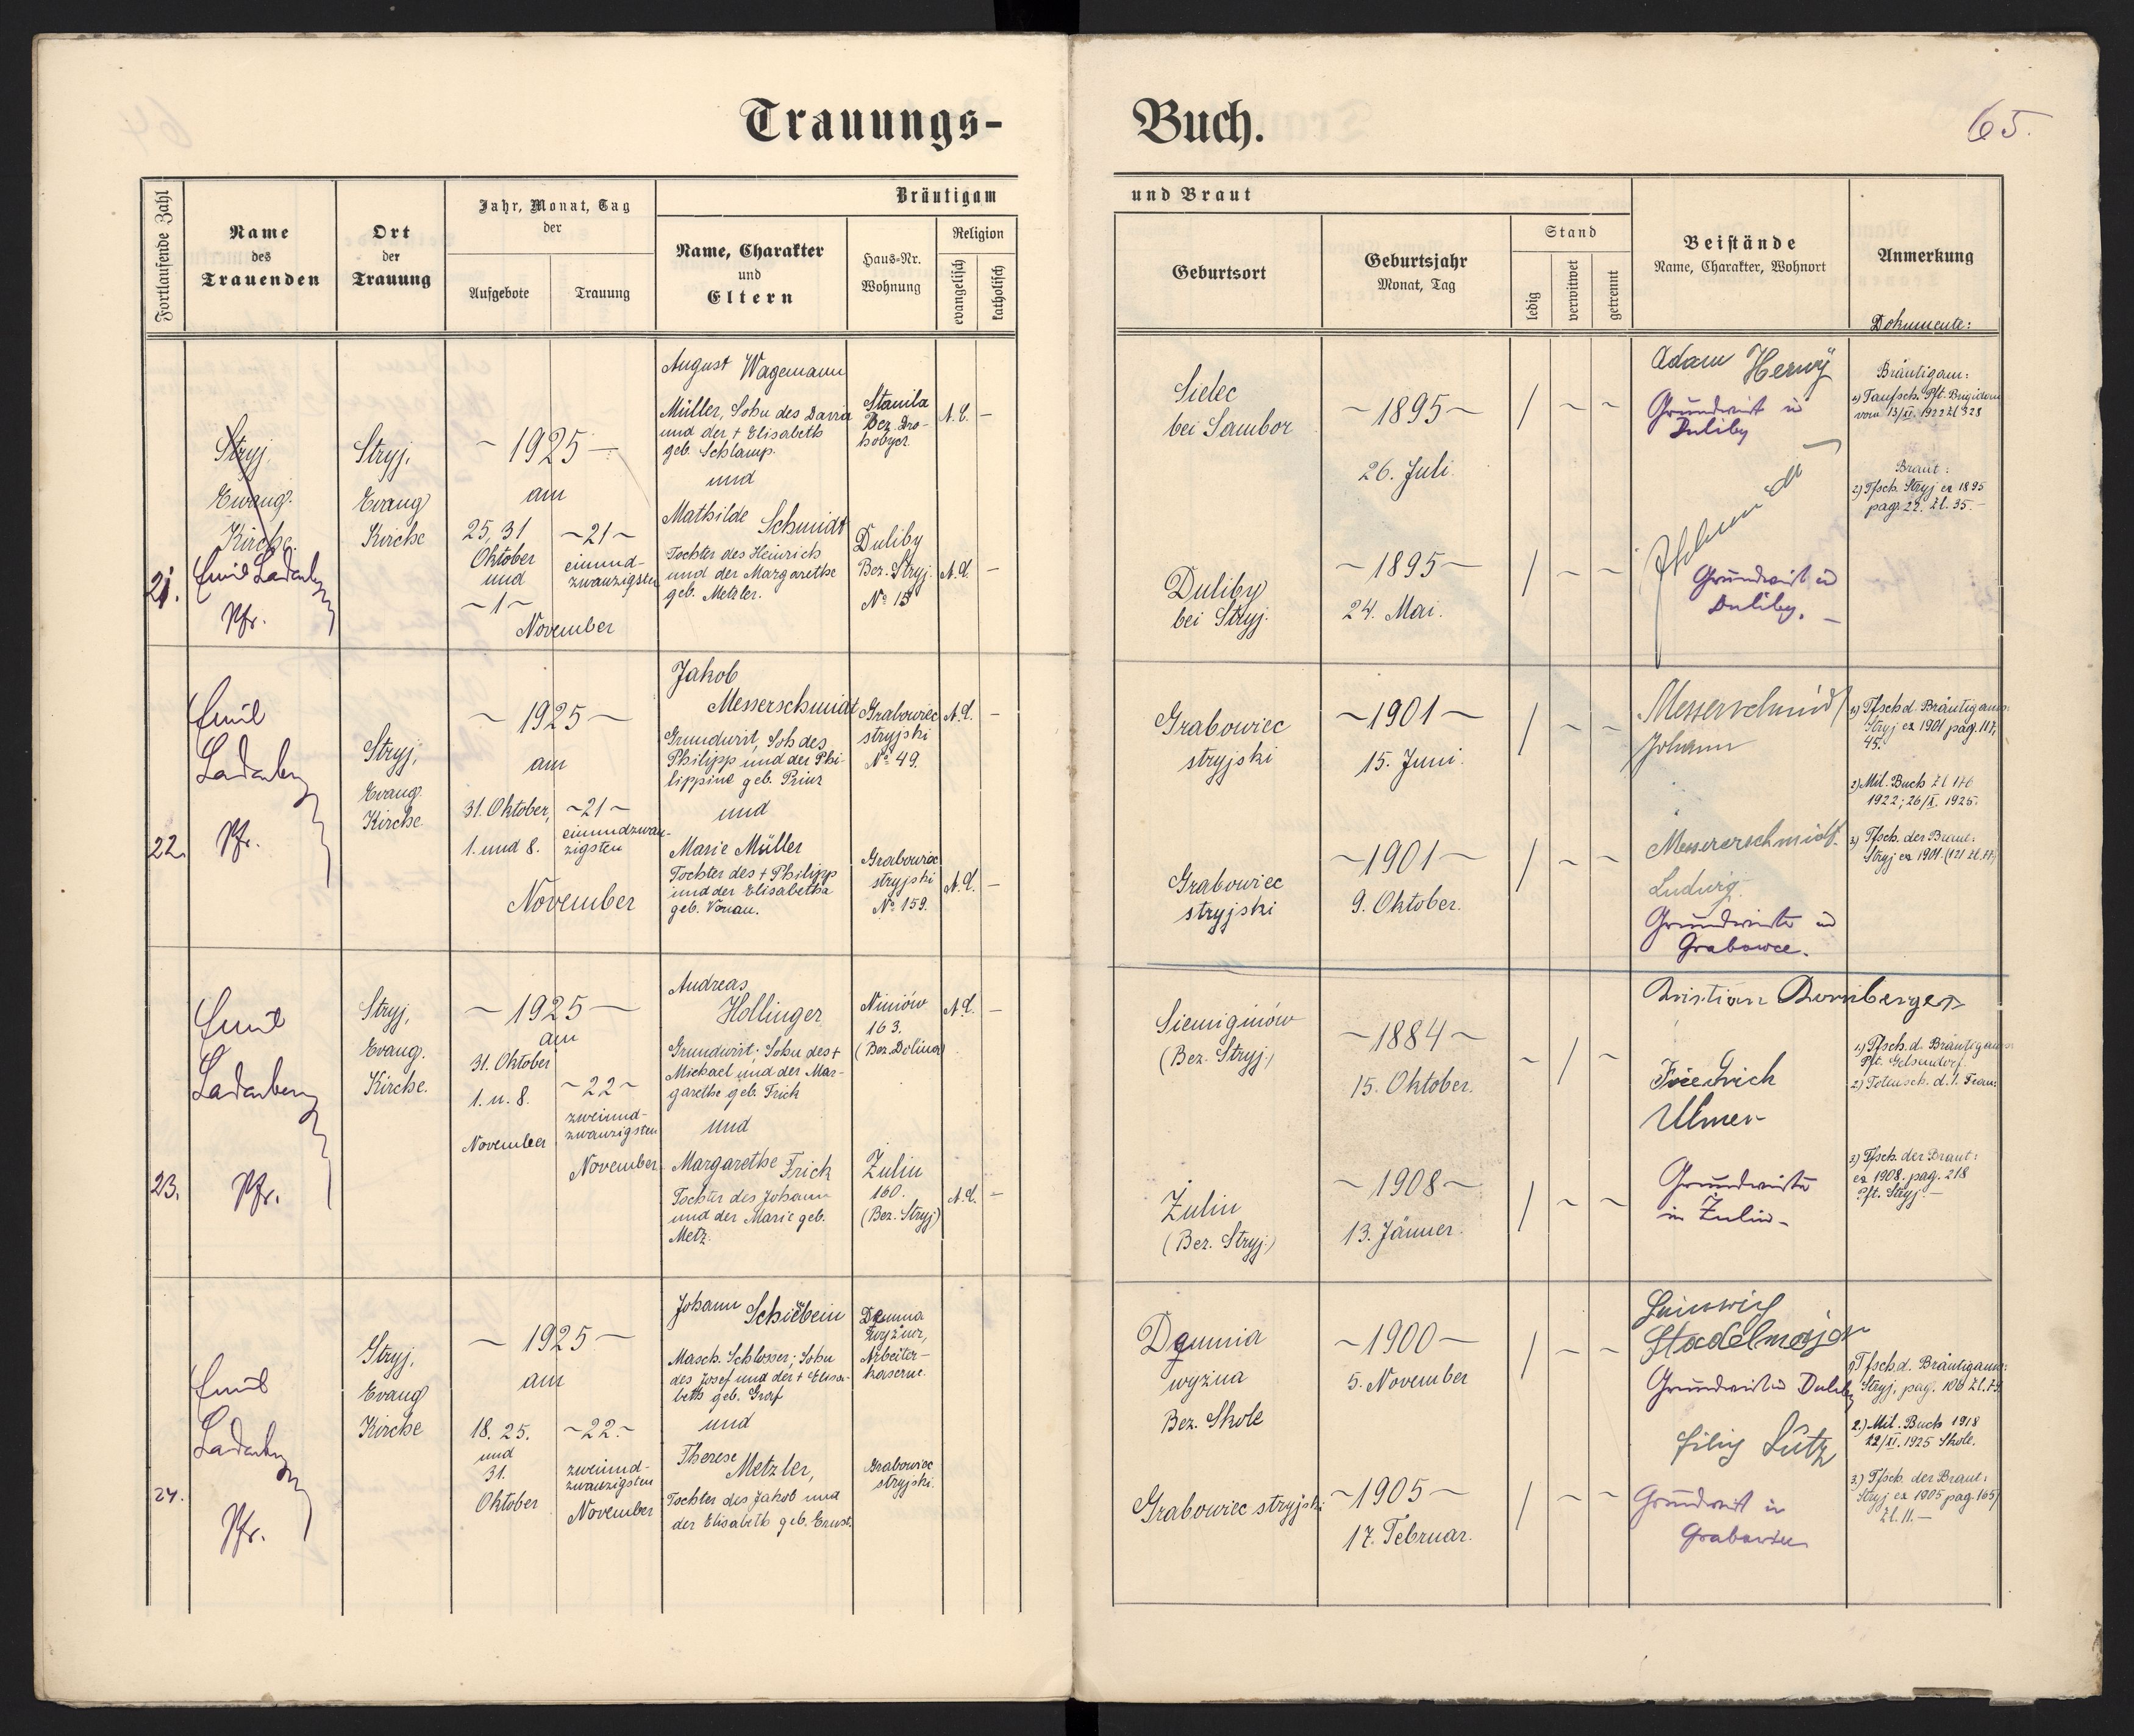 Trauungs-
Buch.
65.
Fortlaufende Zahl
Name
des
Trauenden
Ort
der
Trauung
Jahr, Monat, Tag
der
Aufgebote
Trauung
Bräutigam
Name, Charakter
und
Eltern
Haus-Nr.
Wohnung
Religion
evangelisch
katholisch
und Braut
Geburtsort
Geburtsjahr
Monat, Tag
Stand
ledig
verwitwet
getrennt
Beistände
Name, Charakter, Wohnort
Anmerkung
Dokumente:
21.
Stryj,
Evang.
Kirche.
Emil Ladenberger
Pfr.
Stryj,
Evang
Kirche
~ 1925 ~
am
25, 31
Oktober
und
~ 1 ~
~ 21 ~
einund-
zwanzigsten
November
August Wagemann
Müller, Sohn des
und der + Elisabeth
geb. Schlamp.
und
Mathilde Schmidt
Tochter des Heinrich
und der Margarethe
geb. Metzler.
Stanila
Bez. Dro-
hobycz
A.C. –
Duliby
Bez. Stryj.
No 15
A.C. –
Sielec
bei Sambor
~ 1895 ~
26. Juli.
/ ~ ~
Duliby
bei Stryj.
~ 1895 ~
24. Mai.
/ ~ ~
Adam
Grundwirt in
Duliby
Grundwirt in
Duliby. –
Bräutigam:
1) Taufsch. Pft. Brigidau
vom 13/XI. 1922 Zl 328
Braut:
2) Tfsch. Stryj ex 1895
pag. 22. Zl. 35. –
22.
Emil
Ladenberger
Pfr.
Stryj,
Evang.
Kirche
~ 1925 ~
am
31. Oktober,
1. und 8.
~ 21 ~
einundzwan-
zigsten
November
Jakob
Messerschmidt
Grundwirt, Soh des
Philipp und der Phi-
lippine geb. Prinz
und
Marie Müller
Tochter des + Philipp
und der Elisabetha
geb. Vonau.
Grabowiec
stryjski
No 49.
A.C. –
Grabowiec
stryjski
No 159.
A.C. –
Grabowiec
stryjski
~ 1901 ~
15. Juni.
/ ~ ~
Grabowiec
stryjski
~ 1901 ~
9. Oktober.
/ ~ ~
Messerschmidt
Johann
Messererschmidt.
Ludwig.
Grundwirte in
Grabowce.
1) Tfsch d. Bräutigams:
Stryj ex 1901 pag. 117,
45.
2) Mil. Buch Zl 176
1922; 26/X. 1925.
3) Tfsch. der Braut:
Stryj ex 1901.
23.
Emil
Ladenberger
Pfr.
Stryj,
Evang.
Kirche.
~ 1925 ~
am
31. Oktober
1. u. 8.
November
~ 22 ~
zweiund-
zwanzigsten
November
Andreas
Hollinger
Grundwirt; Sohn des +
Michael und der Mar-
garethe geb. Frick
und
Margarethe Frick
Tochter des Johann
und der Marie geb.
Metz.
Niniów
163.
(Bez. Dolina)
A.C. –
Żulin
160.
(Bez. Stryj)
A.C. –
Siemiginów
(Bez. Stryj.)
~ 1884 ~
15. Oktober.
~ / ~
Żulin
(Bez. Stryj.)
~ 1908 ~
13. Jänner.
/ ~ ~
Kristian Dornberger
Friedrich
Ulmer
Grundwirte
in Żulin –
1) Tfsch. d. Bräutigams:
Pft. Gelsendorf
2) Totensch. d. 1. Frau:
3) Tfsch. der Braut:
ex 1908. pag. 218
Pft. Stryj. –
24.
Emil
Ladenberger
Pfr.
Stryj,
Evang
Kirche
~ 1925 ~
am
18. 25.
und
31.
Oktober
~ 22. ~
zweiund-
zwanzigsten
November
Johann Schiebein
Masch. Schlosser; Sohn
des Josef und der + Elisa-
beth geb. Graf
und
Therese
Metzler,
Tochter des Jakob und
der Elisabeth geb. Ernst.
Demnia
wyżna,
Arbeiter-
kaserne.
Grabowiec
stryjski.
Demnia
wyżna
Bez. Skole
~ 1900 ~
5. November
/ ~ ~
Grabowiec stryjski
~ 1905 ~
17. Februar.
/ ~ ~
Stadelmajer
Grundwirt in Duliby
Filip Lutz
Grundwirt in
1) Tfsch d. Bräutigams:
Stryj, pag. 106
2.) Mil. Buch 1918
22/XI. 1925 Skole.
3.) Tfsch. der Braut:
Stryj ex 1905 pag. 165,
Zl. 11. –